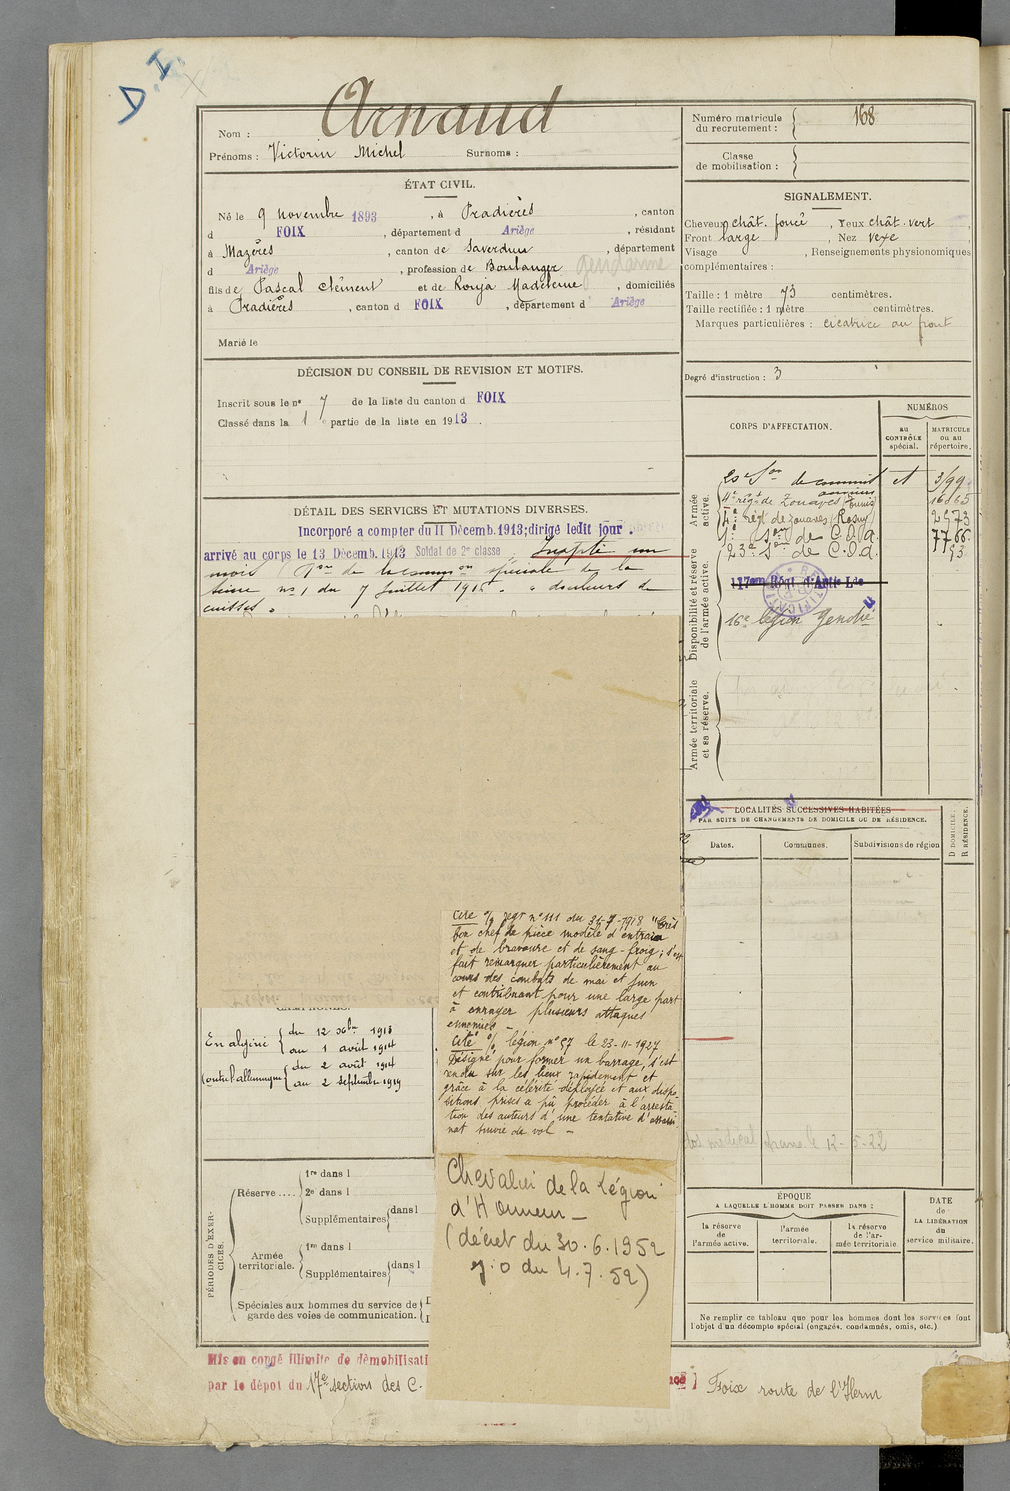 D.I.
Nom : Arnaud
Prénoms : Victorin Michel Surnoms :
ÉTAT CIVIL.
Né le 9 novembre 1893, à Pradières, canton
d FOIX, département d Ariège, résidant
à Mazères, canton de Saverdun, département
d Ariège, profession de Boulanger gendarme
fils de Pascal Clément et de Rouja Madeleine, domiciliés
à Pradières, canton d FOIX, département d Ariège
Marié le
DÉCISION DU CONSEIL DE REVISION ET MOTIFS.
Inscrit sous le nº 7 de la liste du canton d FOIX
Classé dans la 1 e partie de la liste en 1913.
DÉTAIL DES SERVICES ET MUTATIONS DIVERSES.
Incorporé a compter du 11 Décemb. 1913; dirigé ledit jour.
arrivé au corps le 13 Décemb. 1913 Soldat de 2e classe; Inapte un
mois de la spéciale de la
Seine nº 1 du 7 Juillet 1915. douleurs de
cuisses.
Cité % regt nº 111 du 31-7-1918 "très
bon chef de pièce modèle d'entrain
et de bravoure et de sang-froig; s'est
fait remarquer particulièrement au
cours des combats de mai et juin
et contribuant pour une large part
à enrayer plusieurs attaques
ennemies –
Cité % légion nº 97 le 23-11-1927
Désigné pour former un barrage, s'est
rendu sur les lieux rapidement et
grâce à la célérité déployée et aux dispo-
sitions prises a pu procéder à l'arresta-
tion des auteurs d'une tentative d'assassi
nat suivie de vol –
En algérie { du 12 xbre 1913
au 1 août 1914
Contre l'allemagne { du 2 août 1914
au 2 septembre 1919
Chevalier de la Légion
d'Honneur –
(décret du 30.6.1952
J.O du 4.7.52)
PÉRIODES D'EXERCICES.
Réserve.... 1re dans l
2e dans l
Supplémentaires dans l
Armée territoriale. 1re dans l
Supplémentaires dans l
Spéciales aux hommes du service de
garde des voies de communication.
Mis en congé illimité de démobilisati
par le dépot du 17e section des C.
Foix route de l'Herm
Numéro matricule du recrutement : 168
Classe de mobilisation :
SIGNALEMENT.
Cheveux chât. foncé, Yeux chât. vert,
Front large, Nez vexe,
Visage , Renseignements physionomiques
complémentaires :
Taille : 1 mètre 73 centimètres.
Taille rectifiée : 1 mètre centimètres.
Marques particulières : cicatrice au front
Degré d'instruction : 3
CORPS D'AFFECTATION.
NUMÉROS
au CONTRÔLE spécial.
MATRICULE ou au répertoire.
Armée active.
20e Son de commis et 3199
ouvriers
4e régt de Zouaves (Tunis) 16665
4e régt de zouaves (Rosny) 2973
1e Son de C.O.a. 7766
23e Son de C.O.a. 93
Disponibilité et réserve de l'armée active.
117em Régt d'Artie Lde
16e légion Gendie
Armée territoriale et sa réserve.
LOCALITÉS SUCCESSIVES HABITÉES
PAR SUITE DE CHANGEMENTS DE DOMICILE OU DE RÉSIDENCE.
Dates.
Communes.
Subdivisions de région
D DOMICILE.
R RÉSIDENCE.
médical 12-5-22
ÉPOQUE
A LAQUELLE L'HOMME DOIT PASSER DANS :
la réserve de l'armée active.
l'armée territoriale.
la réserve de l'armée territoriale.
DATE de LA LIBÉRATION du service militaire.
Ne remplir ce tableau que pour les hommes dont les services font
l'objet d'un décompte spécial (engagés, condamnés, omis, etc.)